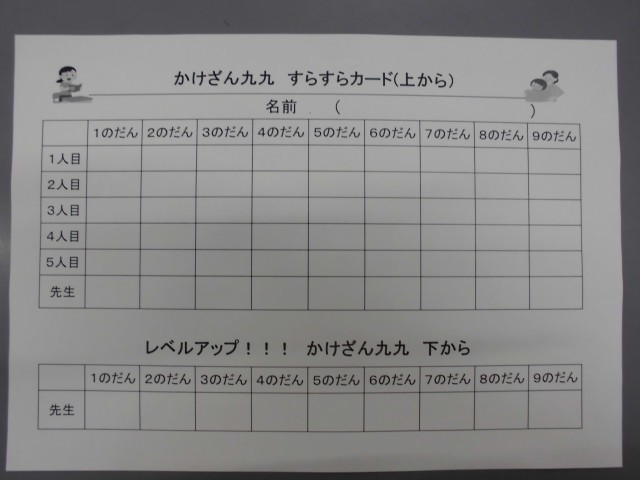 かけざん九九 すらすらカード(上から)
名前 ( )
1のだん 2のだん 3のだん 4のだん 5のだん 6のだん 7のだん 8のだん 9のだん
1人目
2人目
3人目
4人目
5人目
先生
レベルアップ！！！ かけざん九九 下から
1のだん 2のだん 3のだん 4のだん 5のだん 6のだん 7のだん 8のだん 9のだん
先生